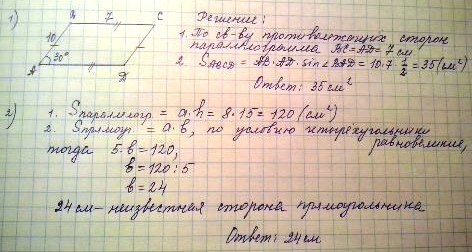 1)
B 7 C
10
30°
A D
Решение:
1. По св-ву противолежащих сторон
параллелограмма BC = AD = 7 см
2. SABCD = AB · AD · sin∠BAD = 10·7·1/2 = 35 (см²)
Ответ: 35 см²
2) 1. Sпараллелогр. = a·h = 8·15 = 120 (см²)
2. Sпрямоуг. = a·b, по условию четырёхугольники
равновеликие,
тогда 5·b = 120,
b = 120 : 5
b = 24
24 см – неизвестная сторона прямоугольника
Ответ: 24 см